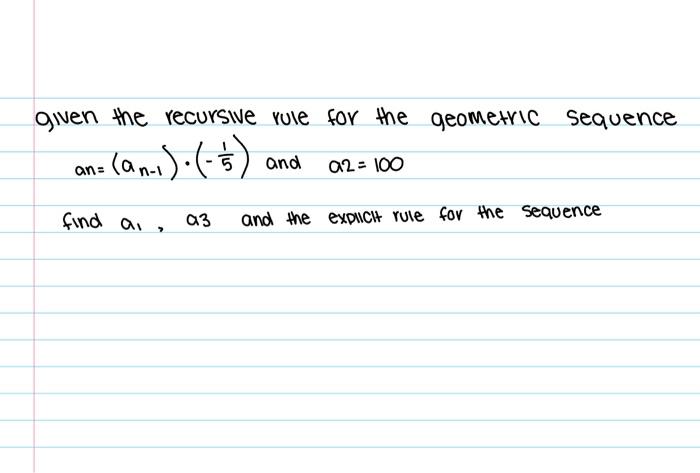 given the recursive rule for the geometric sequence
an= (a n-1) · (-1/5) and a2 = 100
find a1 , a3 and the explicit rule for the sequence